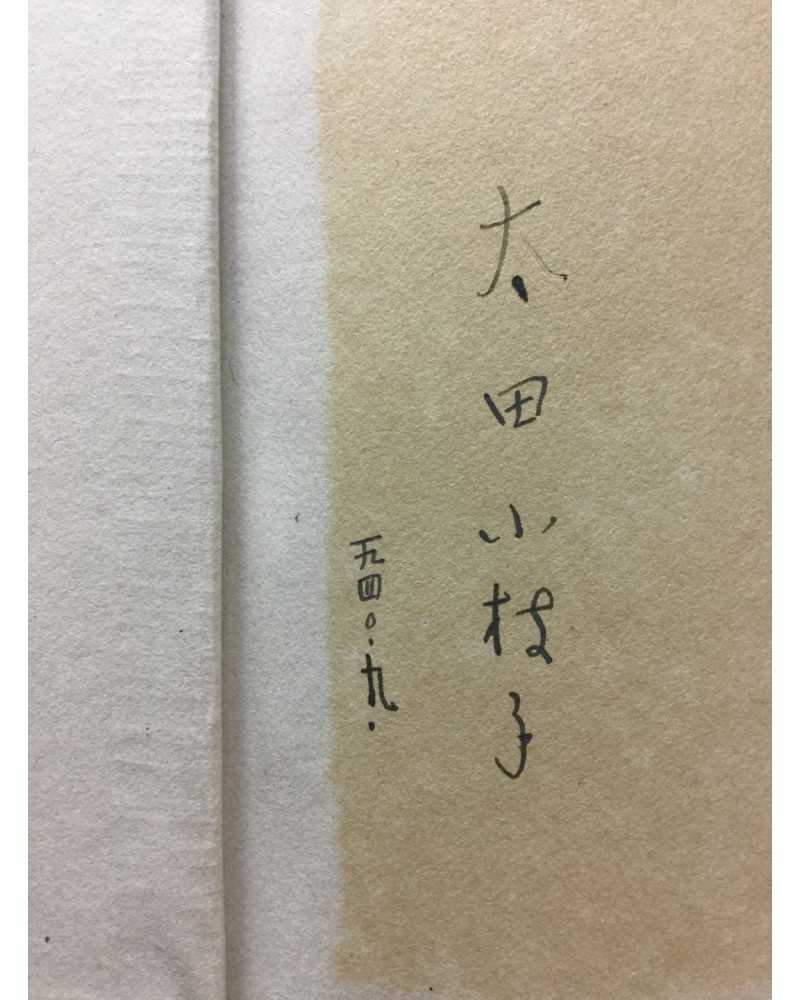 太田小枝子
一九四〇.九.